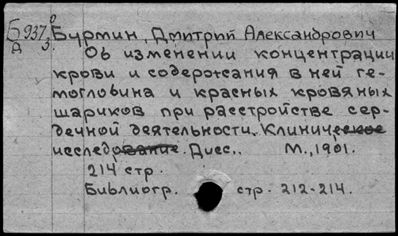 Б 937
А
Бурмин, Дмитрий Александрович
Об изменении концентрации
крови и содержания в ней ге-
моглобина и красных кровяных
шариков при расстройстве сер-
дечной деятельности. Клиническое
исследование. Дисс.. М., 1901.
214 стр.
Библиогр. стр. 212-214.